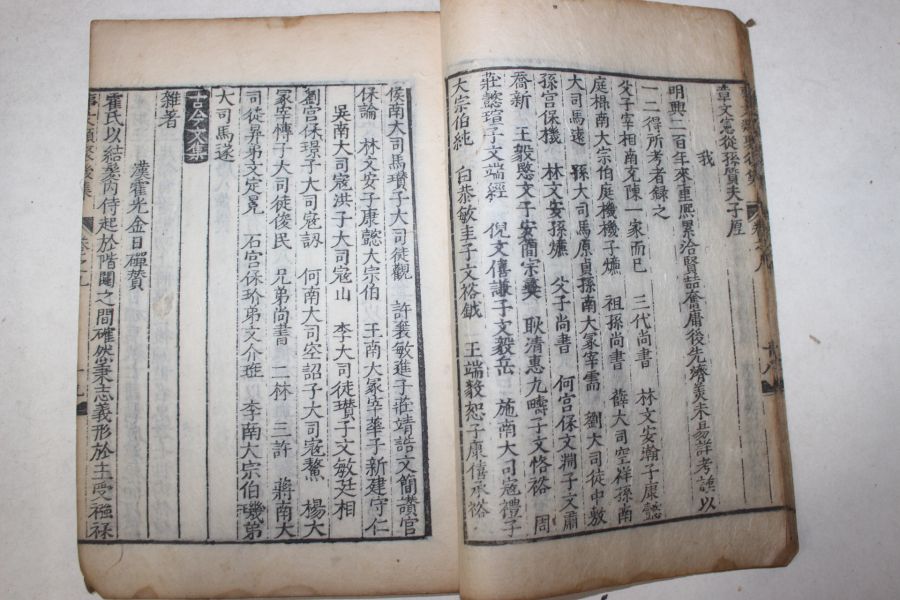 韋文憲從孫質夫子厘
我
明興二百年來重熙累洽賢喆奮庸後先濟美未易詳考謹以
一二得所考者録之
父子宰相南充陳一家而已 三代尚書 林文安瀚子康懿
庭㭿南大宗伯庭機機子燫 祖孫尚書 薛大司空祥孫南
大司馬遠 孫大司馬原貞孫南大冢宰需 劉大司徒中敷
孫宮保機 林文安孫燫 父子尚書 何宮保文淵子文肅
喬新 王毅愍文子安簡宗彝 耿清惠九疇子文恪裕 周
莊懿瑄子文端經 倪文僖謙子文毅岳 施南大司寇禮子
大宗伯純 白恭敏圭子文裕鉞 王端毅恕子康僖承裕
侯南大司馬瓚子大司徒觀 許襄敏進子莊靖誥文簡讚官
保論 林文安子康懿大宗伯 王南大冢宰華子新建守仁
吳南大司寇洪子大司寇山 李大司徒瓚子文敏廷相
劉宮保璟子大司寇訒 何南大司空詔子大司寇鰲 楊大
冢宰慱子大司徒俊民 兄弟尚書 二林 三許 蔣南大
司徒昇弟文定冕 石宮保玠弟文介珤 李南大宗伯璣弟
大司馬遂
古今文集
雜著
漢霍光金日磾賛
霍氏以結髮內侍起於階闥之間確然秉志義形於主受襁褓